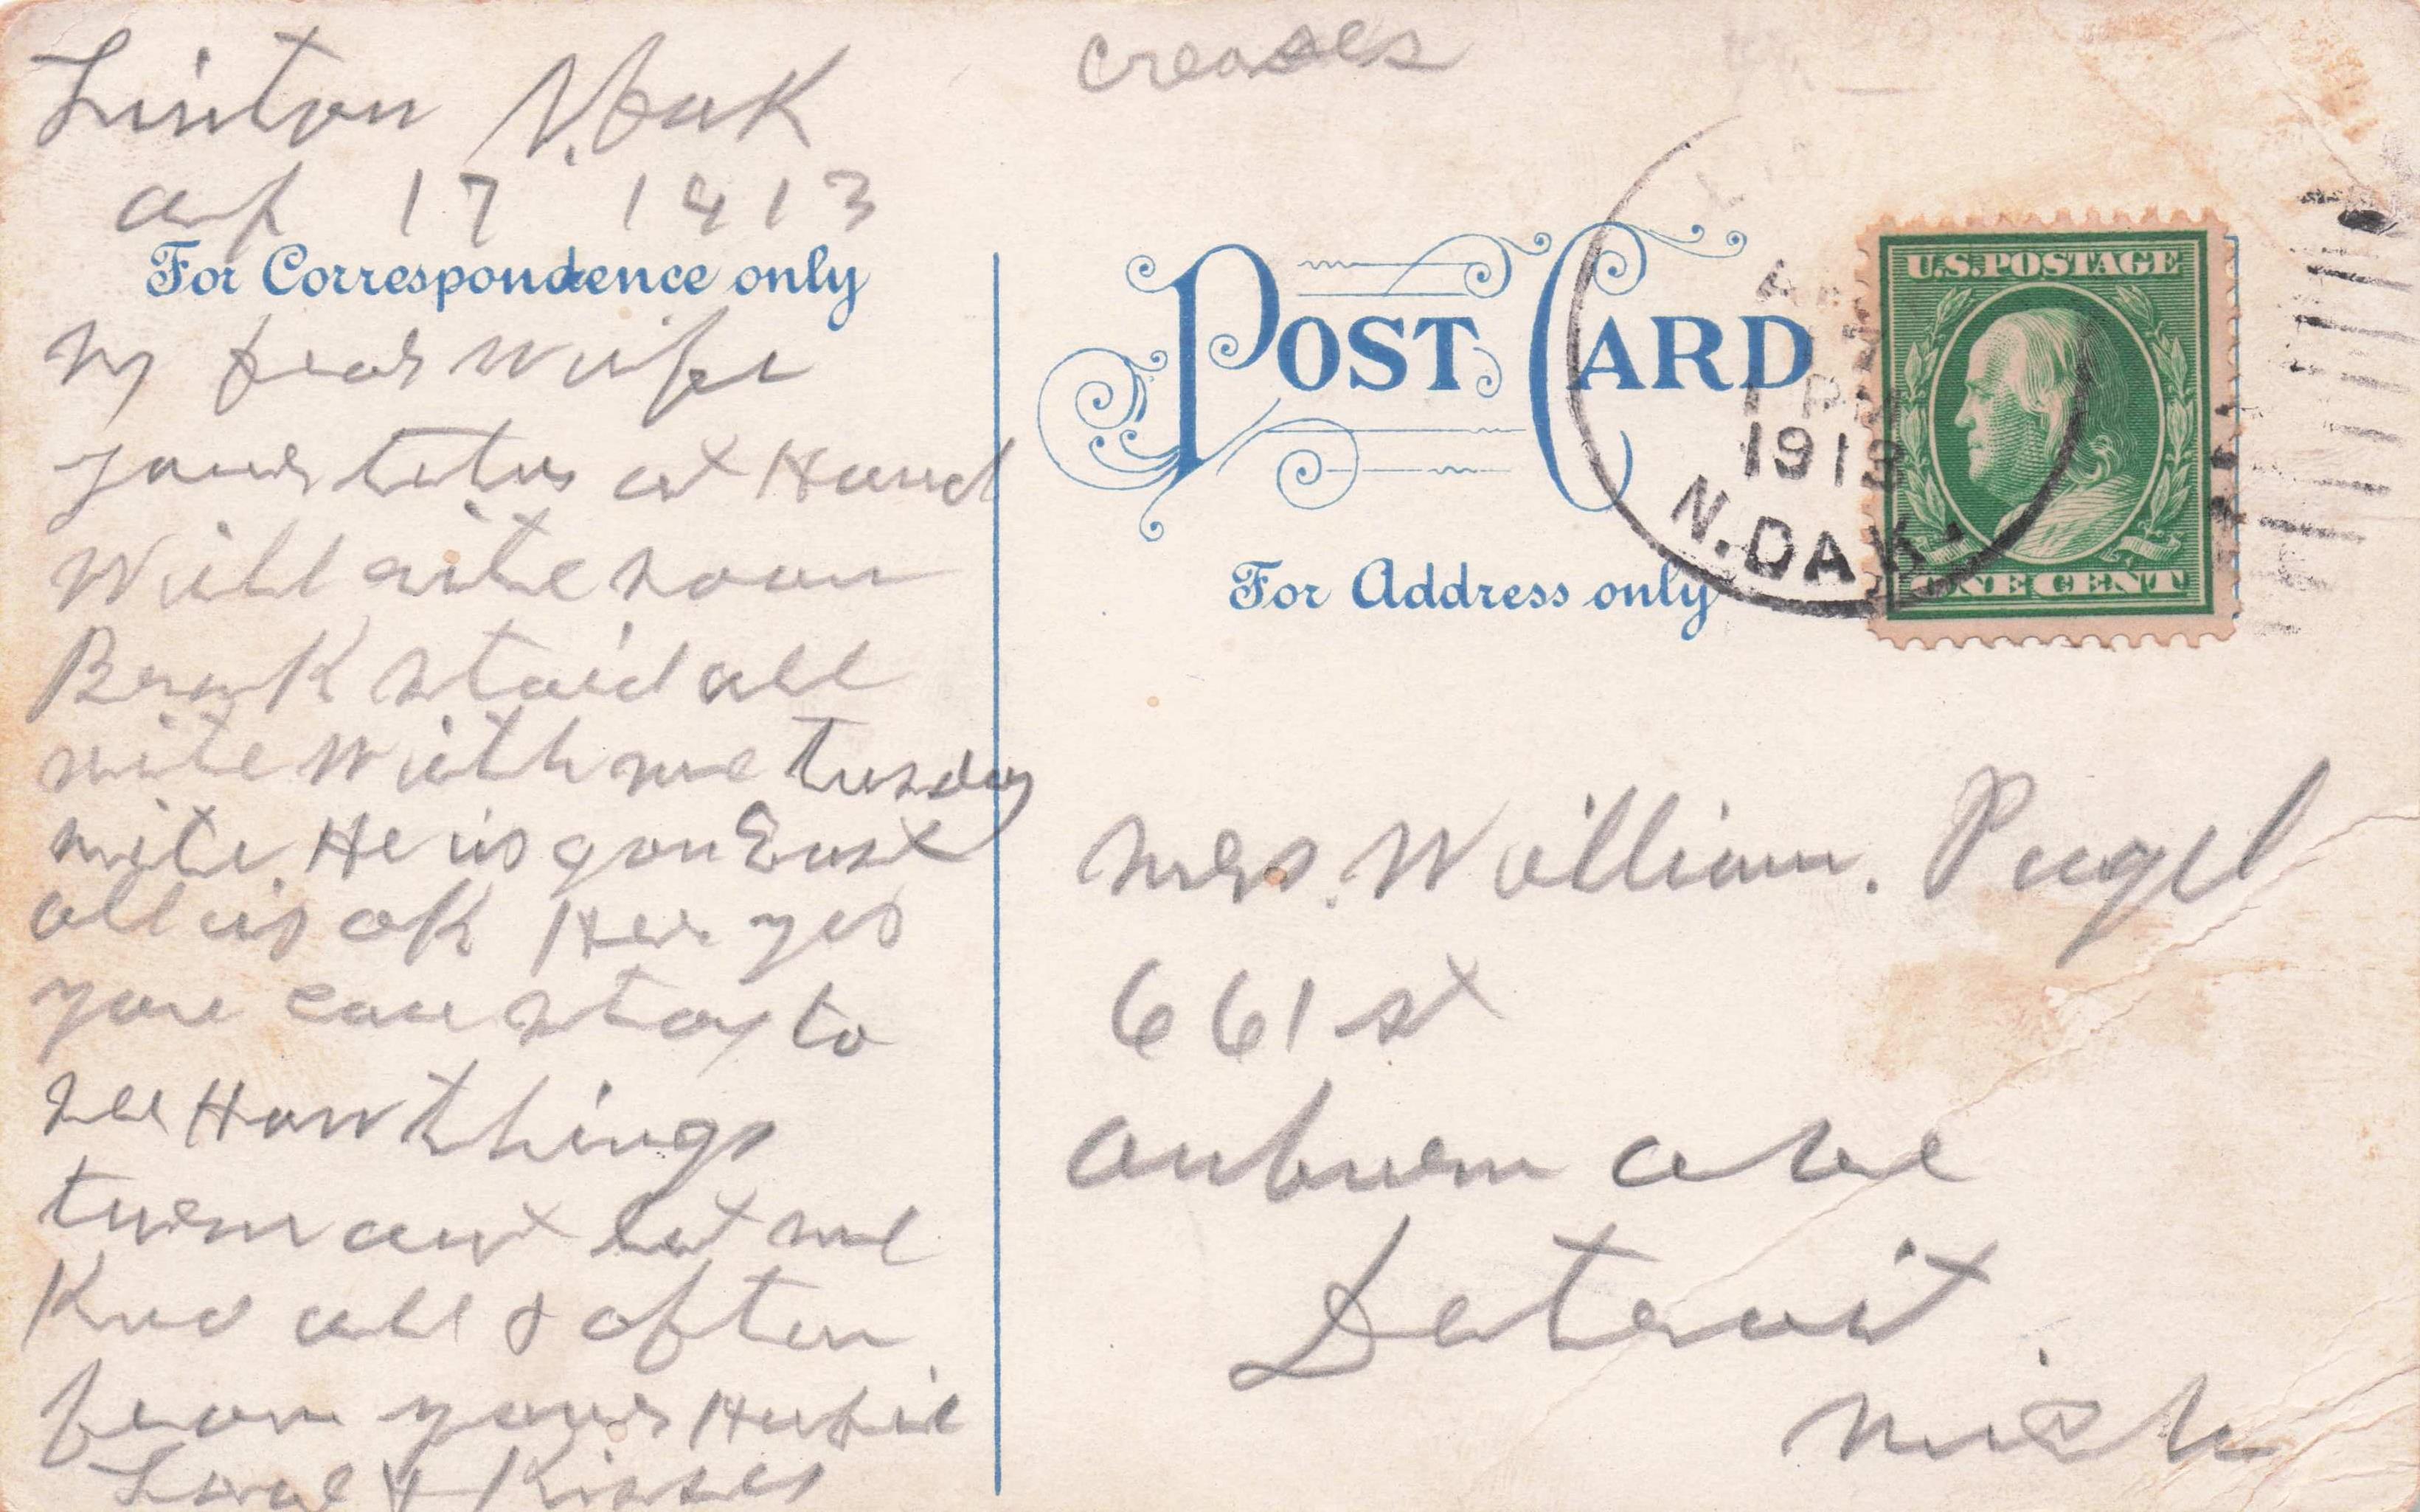 Linton N. Dak
ap 17 1913
For Correspondence only
My Dear Wife
your letter at Hand
Will rite soon
Brank staid all
nite With me tusday
nite. He is gon East
all is ok Her yes
you can stay to
see How things
turn out let me
Kno all & often
from your Hubie
Love & Kisses
creases
POST CARD
For Address only
AP
1 PM
1913
N. DAK.
U.S. POSTAGE
ONE CENT
Mrs. William. Pugel
661 st
auburn ave
Detroit
Mich